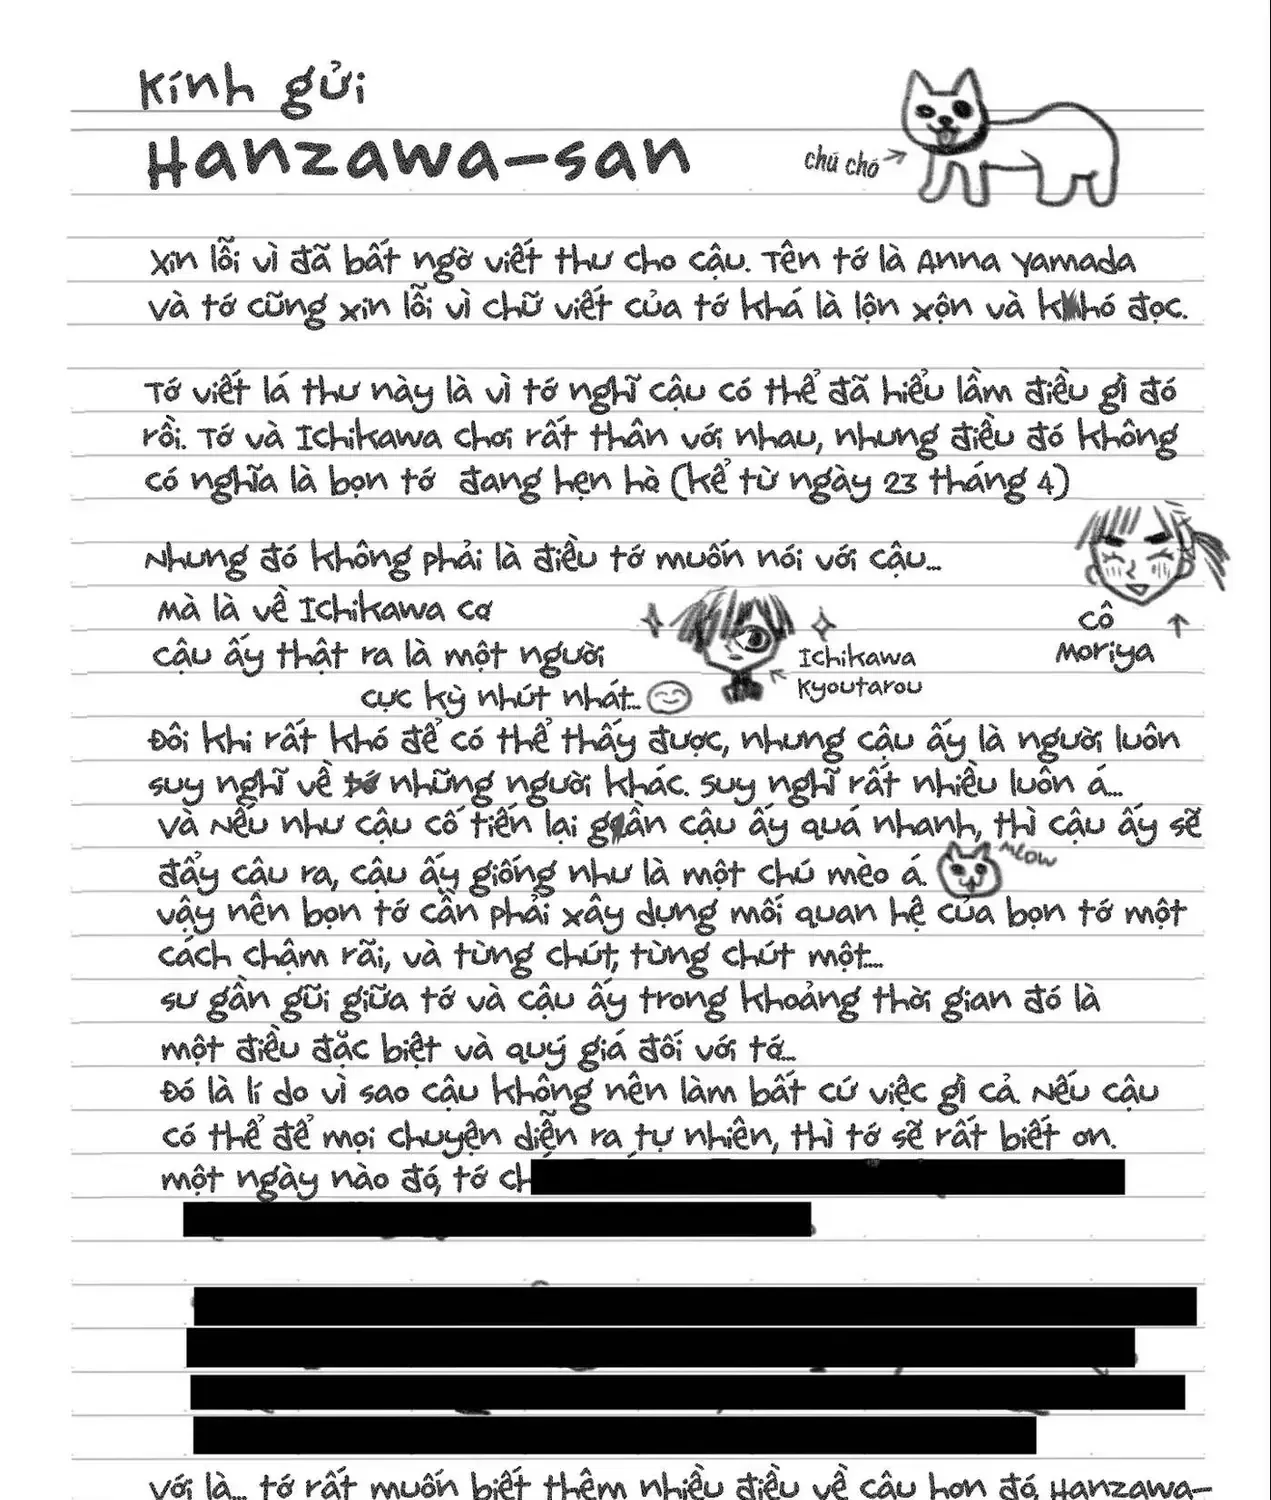 Kính gửi
Hanzawa-san
chú chó
Xin lỗi vì đã bất ngờ viết thư cho cậu. Tên tớ là Anna Yamada
và tớ cũng xin lỗi vì chữ viết của tớ khá là lộn xộn và khó đọc.
Tớ viết lá thư này là vì tớ nghĩ cậu có thể đã hiểu lầm điều gì đó
rồi. Tớ và Ichikawa chơi rất thân với nhau, nhưng điều đó không
có nghĩa là bọn tớ đang hẹn hò (kể từ ngày 23 tháng 4)
Nhưng đó không phải là điều tớ muốn nói với cậu...
cô
Moriya
mà là về Ichikawa cơ
cậu ấy thật ra là một người
cực kỳ nhút nhát...
Ichikawa
Kyoutarou
Đôi khi rất khó để có thể thấy được, nhưng cậu ấy là người luôn
suy nghĩ về những người khác. Suy nghĩ rất nhiều luôn á...
và Nếu như cậu cố tiến lại gần cậu ấy quá nhanh, thì cậu ấy sẽ
đẩy câu ra, cậu ấy giống như là một chú mèo á.
meow
vậy nên bọn tớ cần phải xây dựng mối quan hệ của bọn tớ một
cách chậm rãi, và từng chút, từng chút một....
sư gần gũi giữa tớ và cậu ấy trong khoảng thời gian đó là
một điều đặc biệt và quý giá đối với tớ...
Đó là lí do vì sao cậu không nên làm bất cứ việc gì cả. Nếu cậu
có thể để mọi chuyện diễn ra tự nhiên, thì tớ sẽ rất biết ơn.
một ngày nào đó, tớ ch
với là... tớ rất muốn biết thêm nhiều điều về cậu hơn đó, Hanzawa-